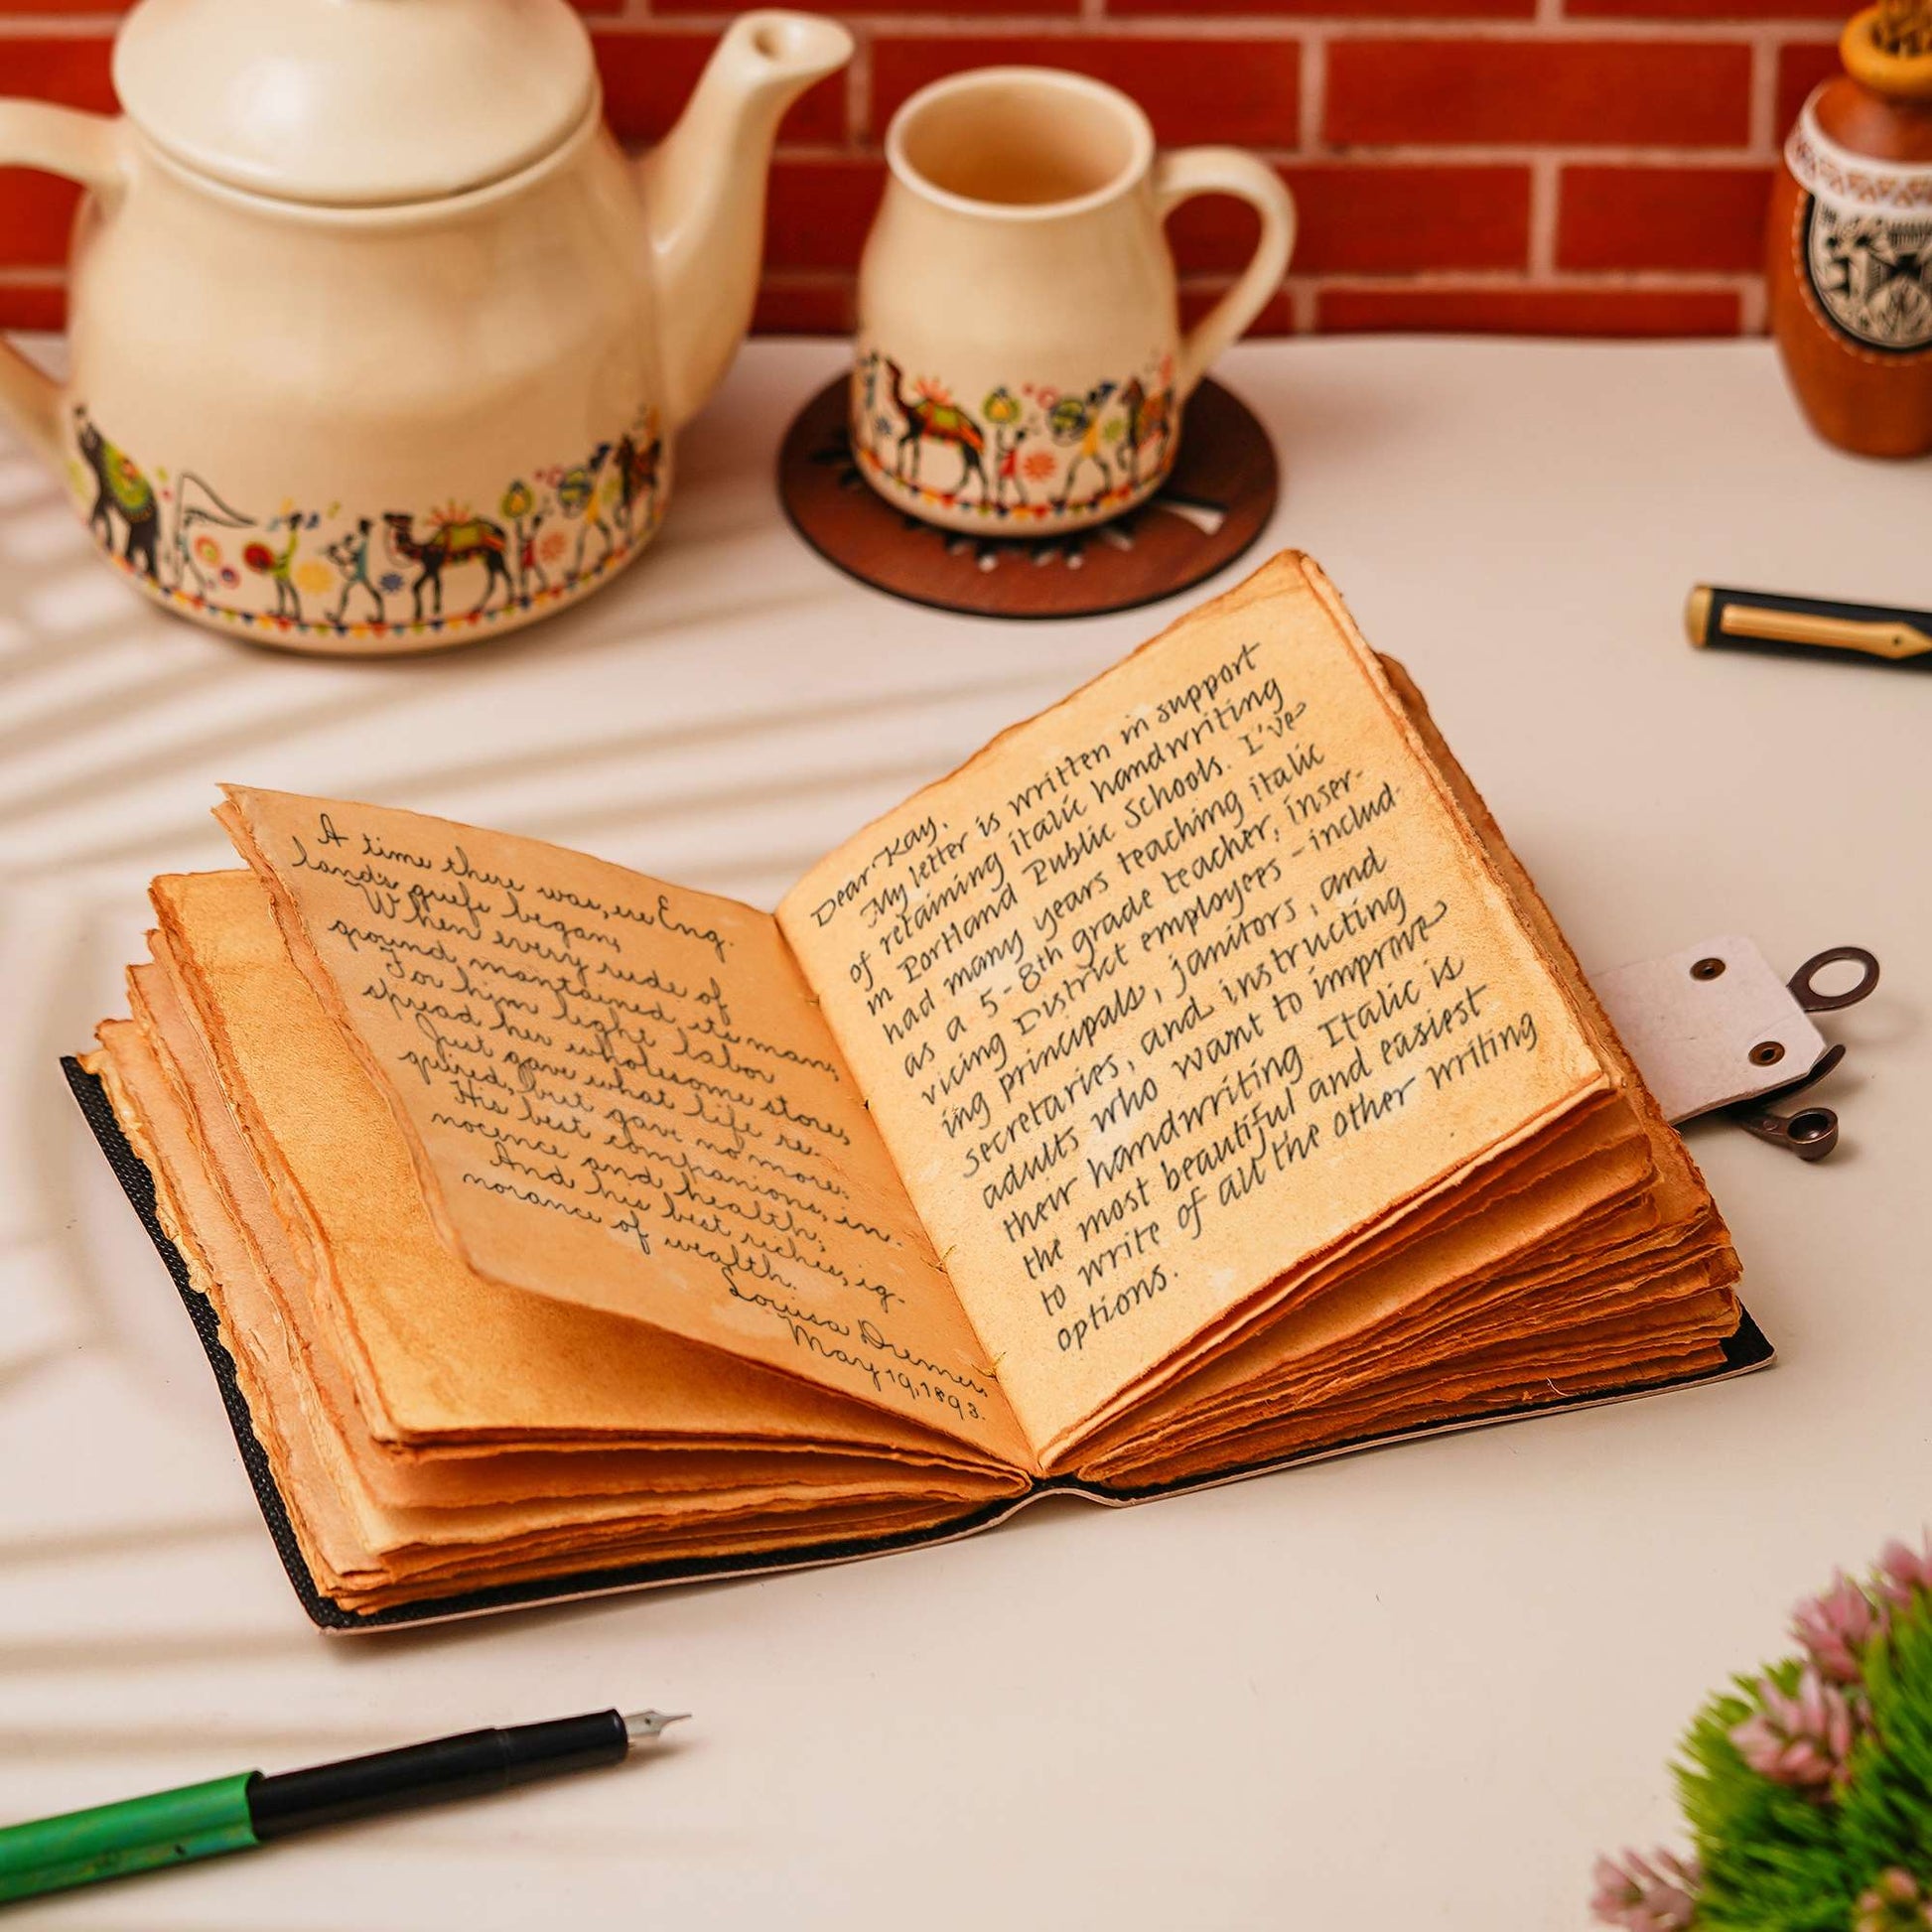 A time there was, ere Eng-
land's griefs began,
When every rude of
ground mantained its man;
For him light labor
spread her wholesome stores,
Just gave what life re-
quired, but gave no more:
His best companions, in-
nocence and health;
And his best riches, ig-
norance of wealth.
Louisa Diemer.
May 19, 1893.
Dear Kay,
My letter is written in support
of retaining italic handwriting
in Portland Public Schools. I've
had many years teaching italic
as a 5-8th grade teacher, inser-
vicing District employees - includ-
ing principals, janitors, and
secretaries, and instructing
adults who want to improve
their handwriting. Italic is
the most beautiful and easiest
to write of all the other writing
options.